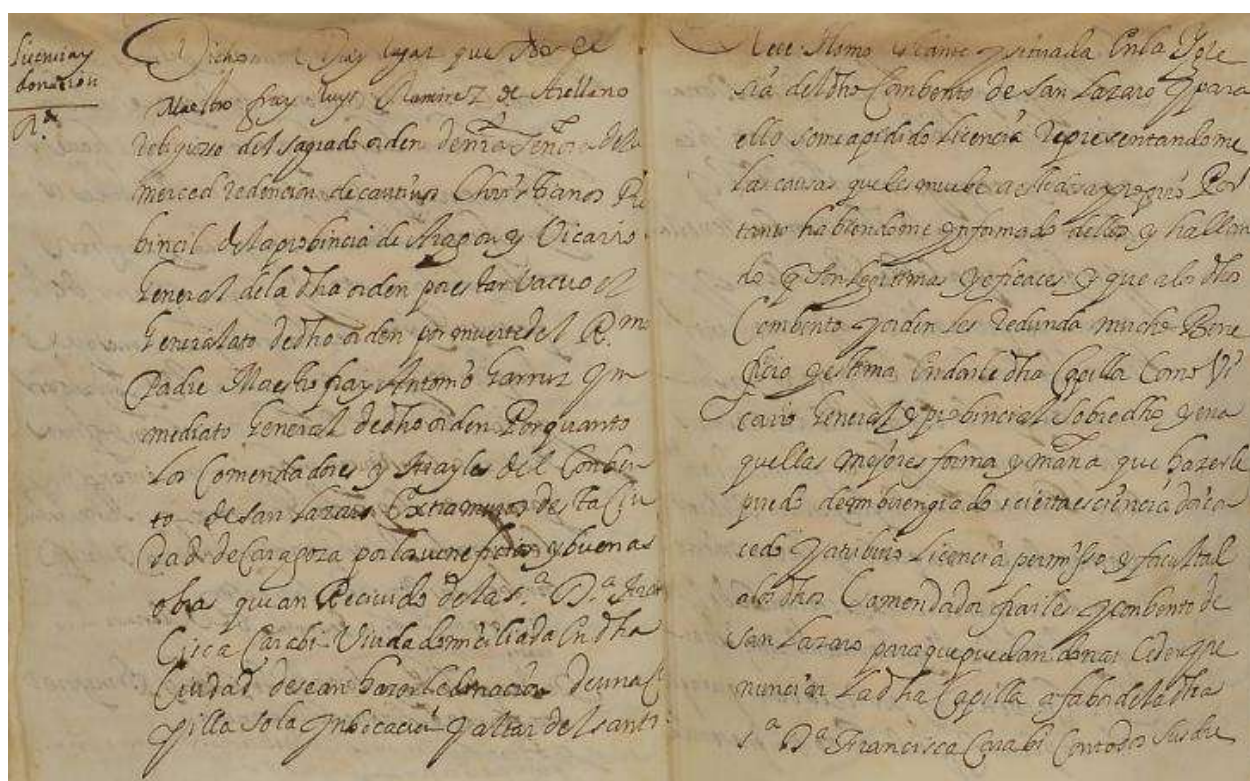 Licencia y
donacion
Dicho Dia y lugar que Yo el
Maestro fray luys Ramirez de Arellano
Religiosso del sagrado orden de nra Señora dela
merced redencion de cautivos Christianos Pro
bincial dela probincia de Aragon y Vicario
General dela dha orden por estar vacuo el
Generalato de dho orden por muerte del R.mo
Padre Maestro fray Antonio Garruz ym
mediato General de dho orden Por quanto
los Comendadores y frayles del Conben
to de San Lazaro Extramuros desta Ciu
dad de Caragoza por la veneficios y buenas
obras quean Recivido de la s.ª D.ª Fran
cisca Carabi Viuda domiciliada En dha
Ciudad desean hazerle donacion de una Ca
pilla so la ynbocacion y altar del santi
Ecce Homo sitiada En la Ygle
sia del dho Combento de san Lazaro y para
ello seme a pidido licencia representandome
las causas queles muebe a Por
tanto habiendome ynformado dellas y hallan
do q son legitimas y eficaces y que a los dhos
Combento y orden les redunda mucho Bene
ficio y estima En darle dha Capilla Como Vi
cario General y probincial sobredho y en a
quellas mejores forma y mana que hazerle
puedo de mi cierta esciencia doi con
cedo y atribuio licencia permisso y facultad
a los dhos Comendador frailes y conbento de
san Lazaro para que puedan donar Ceder y re
nunciar la dha Capilla a fabor de la dha
s.ª D.ª Francisca Carabi Con todos sus dre